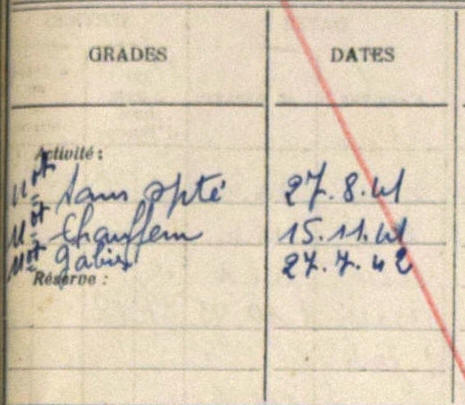 GRADES DATES
Activité :
Mot sans spté 27.8.41
Mot chauffeur 15.11.41
Mot gabier 27.7.42
Réserve :